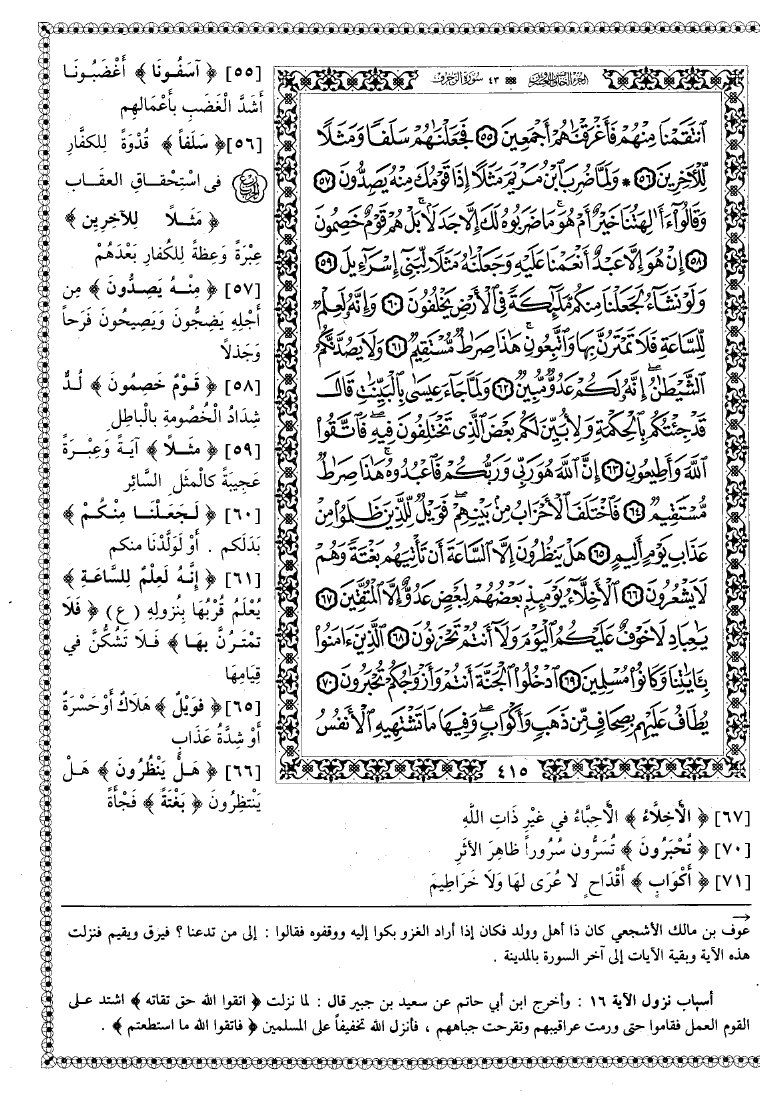 الجزء الخامس والعشرون ٤٣ سورة الزخرف
ٱنتَقَمْنَا مِنْهُمْ فَأَغْرَقْنَٰهُمْ أَجْمَعِينَ ٥٥ فَجَعَلْنَٰهُمْ سَلَفًا وَمَثَلًا
لِّلْءَاخِرِينَ ٥٦ * وَلَمَّا ضُرِبَ ٱبْنُ مَرْيَمَ مَثَلًا إِذَا قَوْمُكَ مِنْهُ يَصِدُّونَ ٥٧
وَقَالُوٓا۟ ءَأَٰلِهَتُنَا خَيْرٌ أَمْ هُوَ ۚ مَا ضَرَبُوهُ لَكَ إِلَّا جَدَلًۢا ۚ بَلْ هُمْ قَوْمٌ خَصِمُونَ
٥٨ إِنْ هُوَ إِلَّا عَبْدٌ أَنْعَمْنَا عَلَيْهِ وَجَعَلْنَٰهُ مَثَلًا لِّبَنِىٓ إِسْرَٰٓءِيلَ ٥٩
وَلَوْ نَشَآءُ لَجَعَلْنَا مِنكُم مَّلَٰٓئِكَةً فِى ٱلْأَرْضِ يَخْلُفُونَ ٦٠ وَإِنَّهُۥ لَعِلْمٌ
لِّلسَّاعَةِ فَلَا تَمْتَرُنَّ بِهَا وَٱتَّبِعُونِ ۚ هَٰذَا صِرَٰطٌ مُّسْتَقِيمٌ ٦١ وَلَا يَصُدَّنَّكُمُ
ٱلشَّيْطَٰنُ ۖ إِنَّهُۥ لَكُمْ عَدُوٌّ مُّبِينٌ ٦٢ وَلَمَّا جَآءَ عِيسَىٰ بِٱلْبَيِّنَٰتِ قَالَ
قَدْ جِئْتُكُم بِٱلْحِكْمَةِ وَلِأُبَيِّنَ لَكُم بَعْضَ ٱلَّذِى تَخْتَلِفُونَ فِيهِ ۖ فَٱتَّقُوا۟
ٱللَّهَ وَأَطِيعُونِ ٦٣ إِنَّ ٱللَّهَ هُوَ رَبِّى وَرَبُّكُمْ فَٱعْبُدُوهُ ۚ هَٰذَا صِرَٰطٌ
مُّسْتَقِيمٌ ٦٤ فَٱخْتَلَفَ ٱلْأَحْزَابُ مِنۢ بَيْنِهِمْ ۖ فَوَيْلٌ لِّلَّذِينَ ظَلَمُوا۟ مِنْ
عَذَابِ يَوْمٍ أَلِيمٍ ٦٥ هَلْ يَنظُرُونَ إِلَّا ٱلسَّاعَةَ أَن تَأْتِيَهُم بَغْتَةً وَهُمْ
لَا يَشْعُرُونَ ٦٦ ٱلْأَخِلَّآءُ يَوْمَئِذٍۭ بَعْضُهُمْ لِبَعْضٍ عَدُوٌّ إِلَّا ٱلْمُتَّقِينَ ٦٧
يَٰعِبَادِ لَا خَوْفٌ عَلَيْكُمُ ٱلْيَوْمَ وَلَآ أَنتُمْ تَحْزَنُونَ ٦٨ ٱلَّذِينَ ءَامَنُوا۟
بِـَٔايَٰتِنَا وَكَانُوا۟ مُسْلِمِينَ ٦٩ ٱدْخُلُوا۟ ٱلْجَنَّةَ أَنتُمْ وَأَزْوَٰجُكُمْ تُحْبَرُونَ ٧٠
يُطَافُ عَلَيْهِم بِصِحَافٍ مِّن ذَهَبٍ وَأَكْوَابٍ ۖ وَفِيهَا مَا تَشْتَهِيهِ ٱلْأَنفُسُ
٤١٥
[٥٥] ﴿ آسَفُونَا ﴾ أَغْضَبُونَا
أَشَدَّ الْغَضَبِ بِأَعْمَالِهِم
[٥٦] ﴿ سَلَفاً ﴾ قُدْوَةً لِلكفَّارِ
في اسْتِحْقَاقِ العِقَاب
﴿ مَثَلاً لِلآخِرِين ﴾
عِبْرَةً وَعِظَةً لِلْكُفَّارِ بَعْدَهُمْ
[٥٧] ﴿ مِنْهُ يَصِدُّونَ ﴾ مِن
أَجْلِهِ يَضِجُّونَ وَيَصِيحُونَ فَرَحاً
وَجَذَلاً
[٥٨] ﴿ قَوْمٌ خَصِمُونَ ﴾ لُدٌّ
شِدَادُ الْخُصُومةِ بِالْباطِلِ
[٥٩] ﴿ مَثَلاً ﴾ آيَةً وَعِبْرَةً
عَجِيبَةً كالْمثَلِ السَّائِر
[٦٠] ﴿ لَجَعَلْنَا مِنكُمْ ﴾
بَدَلَكم . أوْ لَوَلَّدْنَا منكم
[٦١] ﴿ إِنَّهُ لَعِلْمٌ لِلسَّاعَةِ ﴾
يُعْلَمُ قُرْبُهَا بِنُزولِهِ ( ع ) ﴿ فَلَا
تَمْتَرُنَّ بهَا ﴾ فَلَا تَشُكُّنَّ في
قِيَامِهَا
[٦٥] ﴿ فَوَيْلٌ ﴾ هَلَاكٌ أوْ حَسْرَةٌ
أوْ شِدَّةُ عَذَابٍ
[٦٦] ﴿ هَلْ يَنْظُرُونَ ﴾ هَلْ
يَنْتظِرُونَ ﴿ بَغْتَةً ﴾ فَجْأَةً
[٦٧] ﴿ الأَخِلَّاءُ ﴾ الأَحِبَّاءُ في غَيْرِ ذَاتِ اللَّهِ
[٧٠] ﴿ تُحْبَرُونَ ﴾ تُسَرُّونَ سُرُوراً ظاهِرَ الأَثَرِ
[٧١] ﴿ أَكْوَابٍ ﴾ أَقْدَاحٍ لا عُرَى لهَا وَلَا خَرَاطِيمَ
عوف بن مالك الأشجعي كان ذا أهل وولد فكان إذا أراد الغزو بكوا إليه ووقفوه فقالوا : إلى من تدعنا ؟ فيرق ويقيم فنزلت
هذه الآية وبقية الآيات إلى آخر السورة بالمدينة .
أسباب نزول الآية ١٦ : وأخرج ابن أبي حاتم عن سعيد بن جبير قال : لما نزلت ﴿ اتقوا الله حق تقاته ﴾ اشتد على
القوم العمل فقاموا حتى ورمت عراقيبهم وتقرحت جباههم ، فأنزل الله تخفيفاً على المسلمين ﴿ فاتقوا الله ما استطعتم ﴾ .